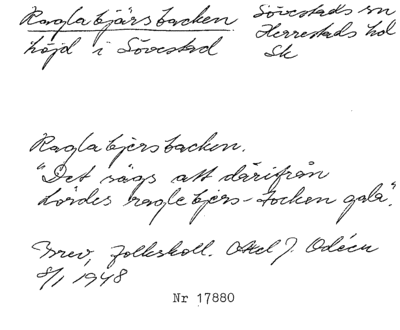 Raglabjärsbacken Sövestads sn
höjd i Sövestad Herrestads hd
Sk
Raglabjersbacken.
"Det sägs att därifrån
hördes raglebjers-tocken gala".
Brev, folkskoll. Axel J. Odéen
8/1 1948
Nr 17880